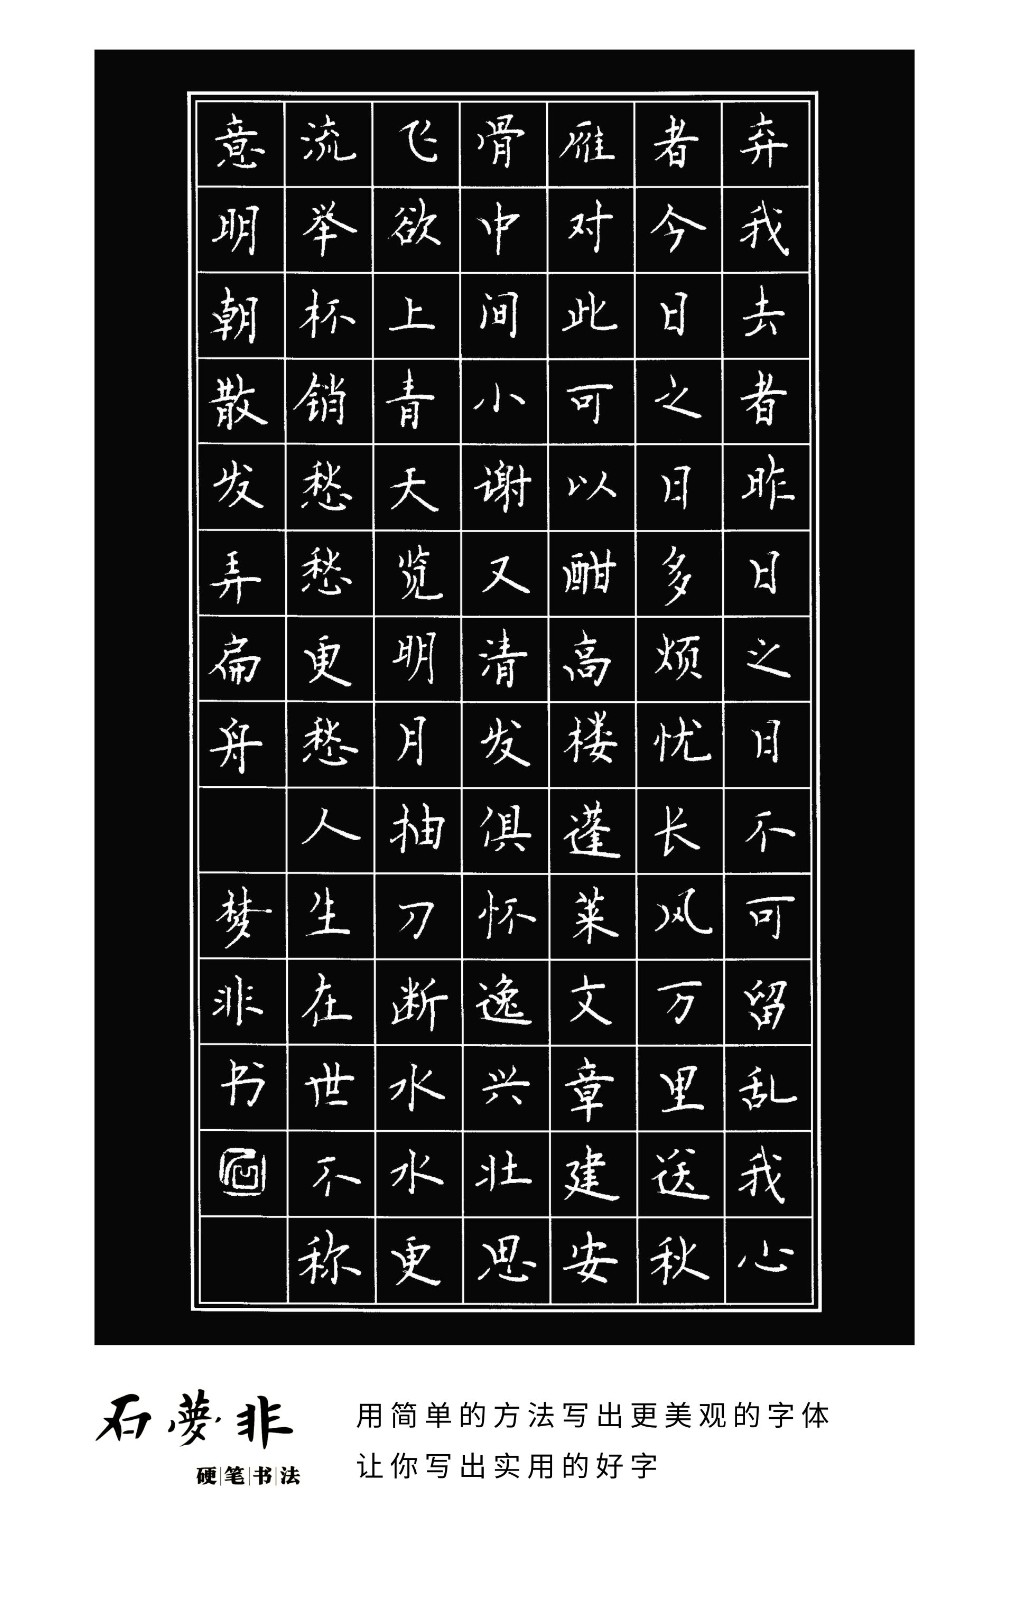 弃我去者昨日之日不可留乱我心
者今日之日多烦忧长风万里送秋
雁对此可以酣高楼蓬莱文章建安
骨中间小谢又清发俱怀逸兴壮思
飞欲上青天览明月抽刀断水水更
流举杯销愁愁更愁人生在世不称
意明朝散发弄扁舟 梦非书
石夢非
硬笔书法
用简单的方法写出更美观的字体
让你写出实用的好字